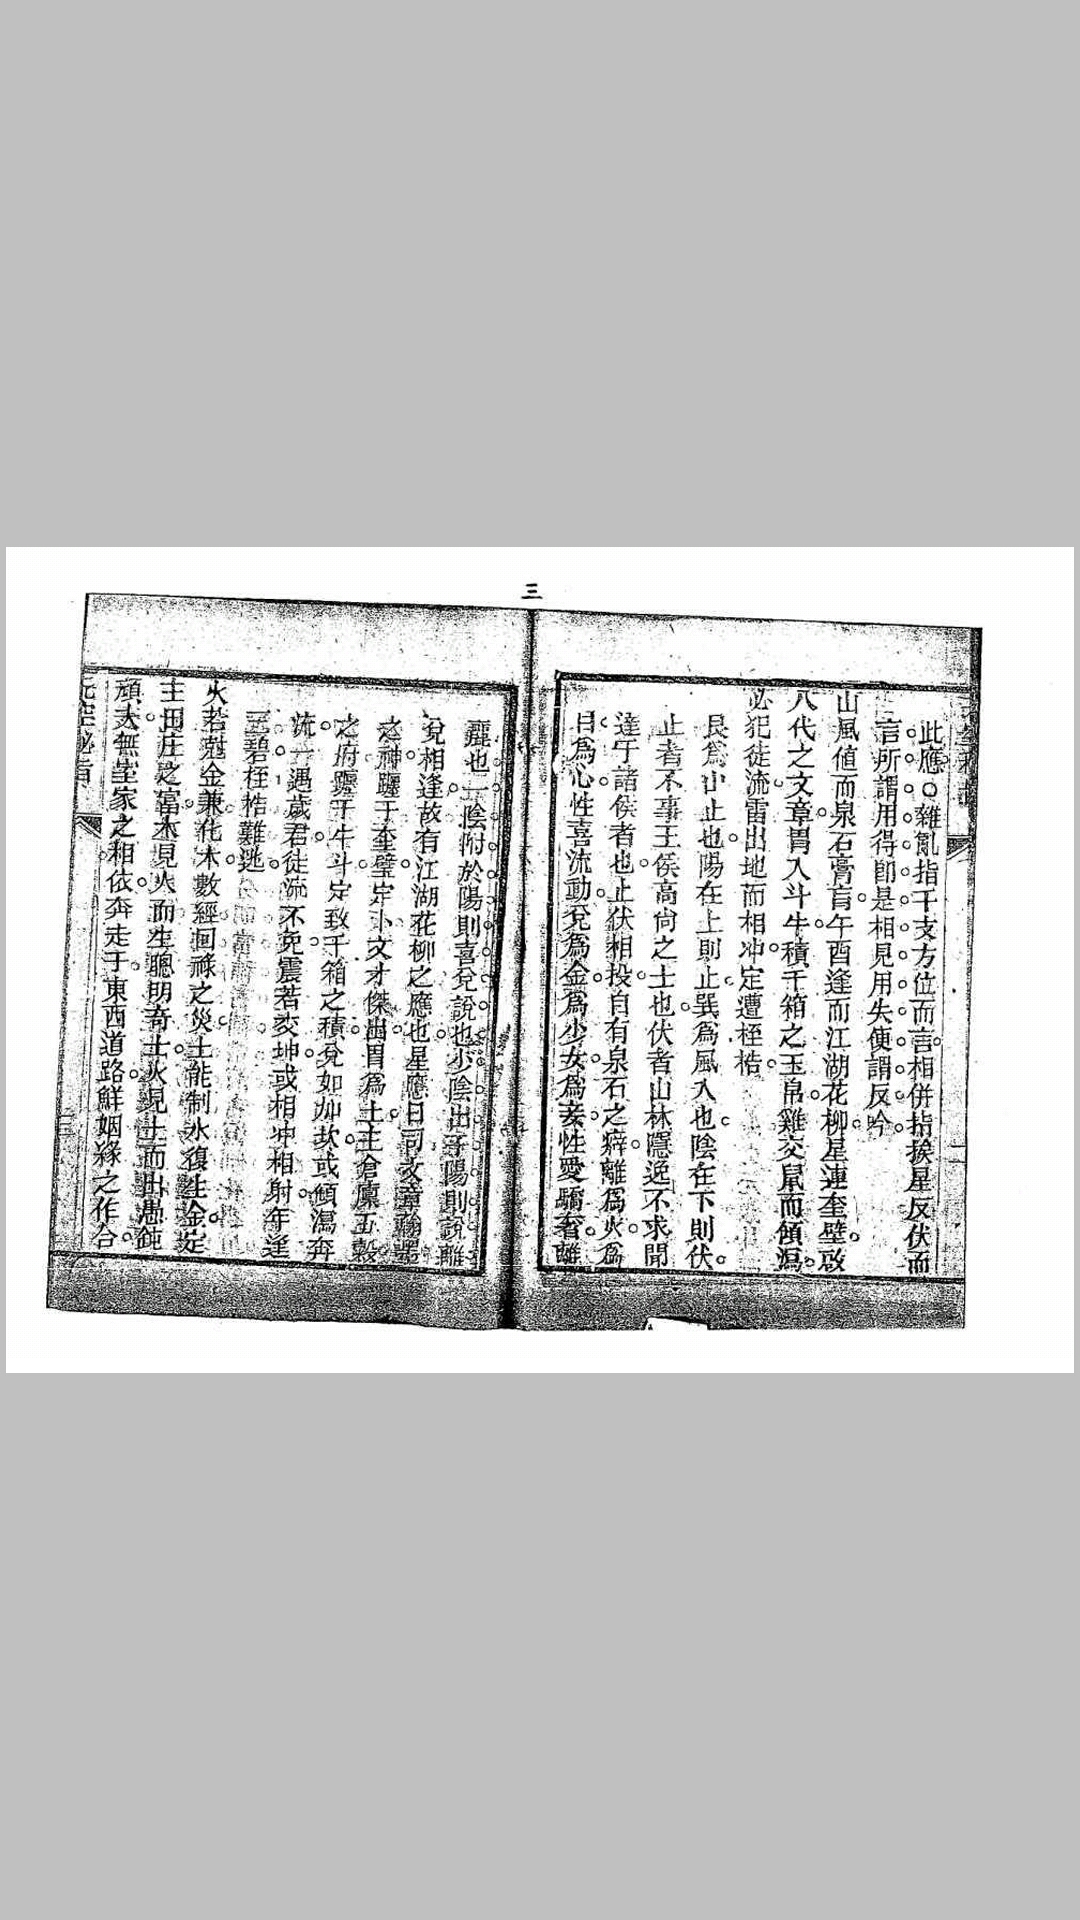 三
此應○雜亂指干支方位而言相併指挨星反伏而
言所謂用得卽是相見用失便謂反吟
山風值而泉石膏肓。午酉逢而江湖花柳。星連奎壁。啟
八代之文章。胃入斗牛。積千箱之玉帛。雞交鼠而傾瀉。
必犯徒流。雷出地而相冲。定遭桎梏。
艮爲山止也。陽在上則止。巽爲風入也。陰在下則伏。
止者不事王侯。高尙之士也。伏者山林隱逸不求聞
達于諸侯者也。止伏相投。自有泉石之癖。離爲火。爲
目。爲心。性喜流動。兌爲金。爲少女。爲妾。性愛驕奢。離
麗也。一陰附於陽則喜。兌說也。少陰出于陽則說。離
兌相逢。故有江湖花柳之應也。星應日司文章翰墨
之神。躔于奎璧。定卜文才傑出。胃爲土。主倉廩五穀
之府。躔于牛斗。定致千箱之積。兌如加坎。或傾瀉奔
流。一遇歲君。徒流不免。震若交坤。或相冲相射。年逢
三碧。桎梏難逃。
火若尅金兼化木。數經回祿之災。土能制水復生金。定
主田庄之富。木見火而生聰明奇士。火見土而出愚鈍
頑夫。無室家之相依。奔走于東西道路。鮮姻緣之作合。